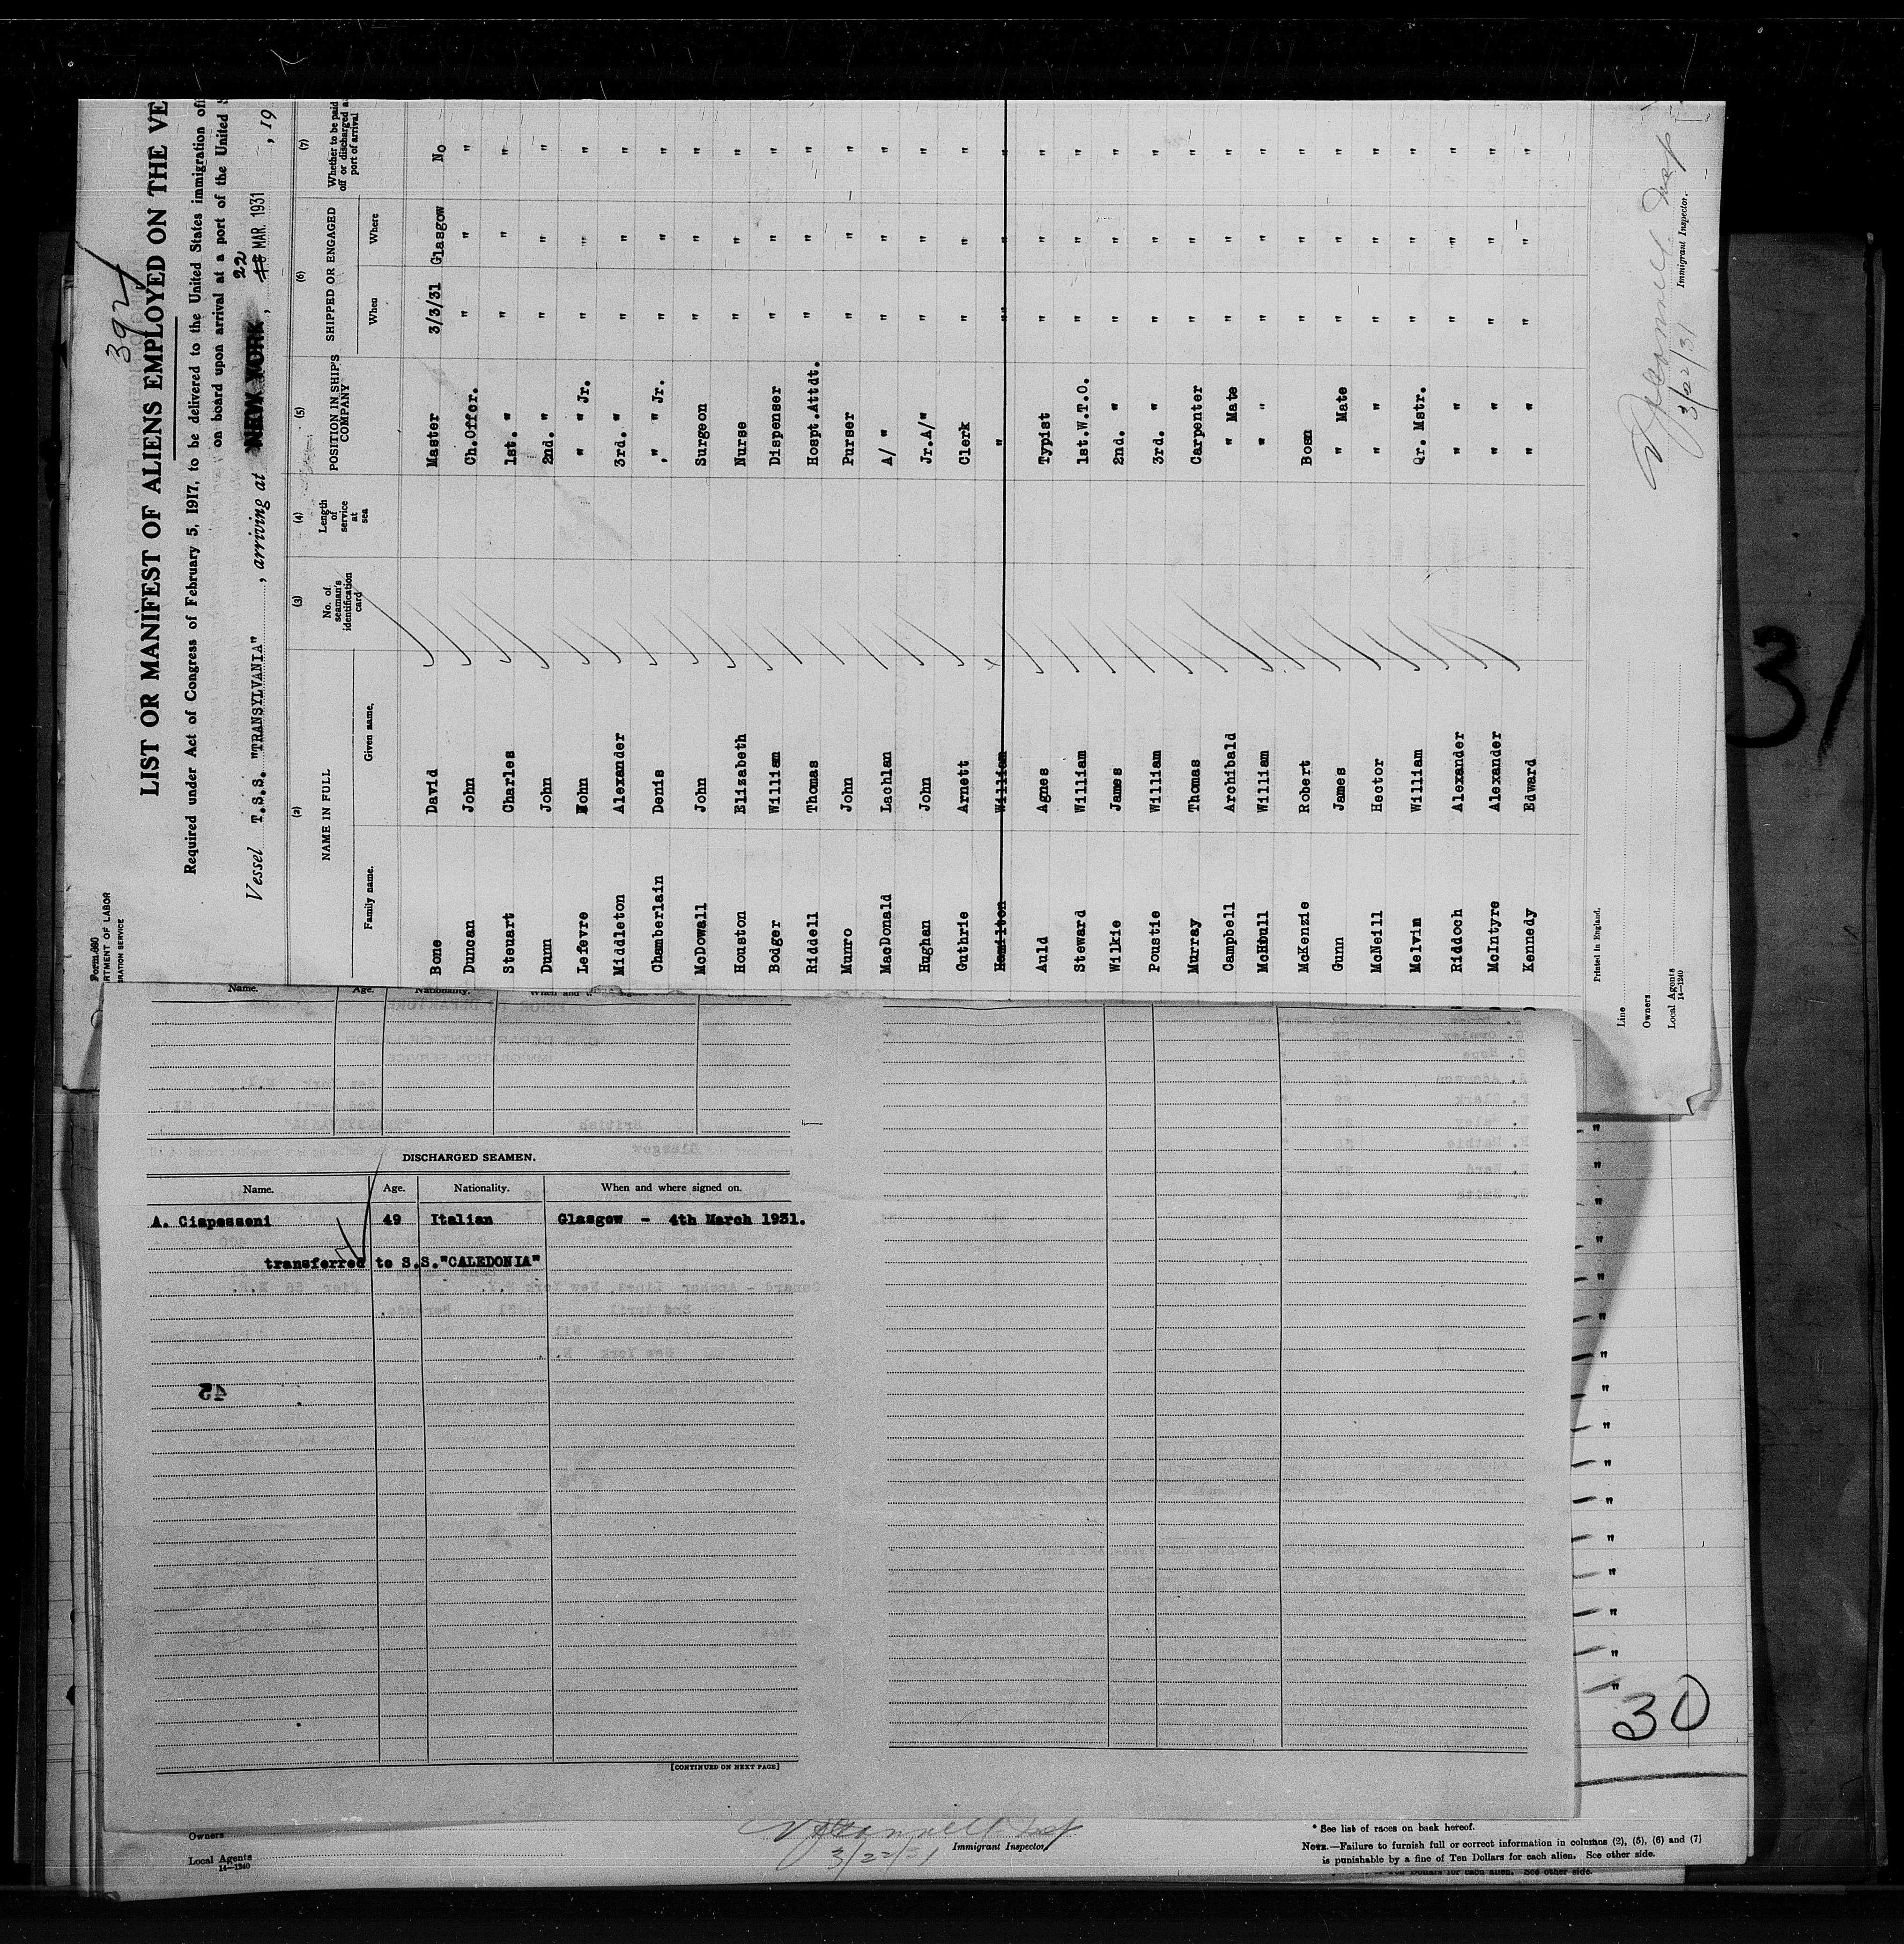 392
Form 680
RTMENT OF LABOR
GRATION SERVICE
LIST OR MANIFEST OF ALIENS EMPLOYED ON THE VE
Required under Act of Congress of February 5, 1917, to be delivered to the United States immigration off
on board upon arrival at a port of the United S
Vessel T.S.S. "TRANSYLVANIA", arriving at NEW YORK, 22 MAR. 1931, 19
(2) (3) (4) (5) (6) (7)
NAME IN FULL No. of seaman's identification card Length of service at sea POSITION IN SHIP'S COMPANY SHIPPED OR ENGAGED Whether to be paid off or discharged at port of arrival
Family name. Given name. When Where
Bone David Master 3/3/31 Glasgow No
Duncan John Ch.Offcr. " " "
Steuart Charles 1st. " " " "
Dunn John 2nd. " " " "
Lefevre John " " Jr. " " "
Middleton Alexander 3rd. " " " "
Chamberlain Denis " " Jr. " " "
McDowall John Surgeon " " "
Houston Elizabeth Nurse " " "
Bodger William Dispenser " " "
Riddell Thomas Hospt.Attdt. " " "
Munro John Purser " " "
MacDonald Lachlan A/ " " " "
Hughan John Jr.A/" " " "
Guthrie Arnett Clerk " " "
Hamilton William " " " "
Auld Agnes Typist " " "
Steward William 1st.W.T.O. " " "
Wilkie James 2nd. " " " "
Poustie William 3rd. " " " "
Murray Thomas Carpenter " " "
Campbell Archibald " Mate " " "
William " " " " "
McKenzie Robert Bosn " " "
Gunn James " Mate " " "
McNeill Hector " " " " "
Melvin William Qr. Mstr. " " "
Riddoch Alexander " " " " "
McIntyre Alexander " " " " "
Kennedy Edward " " " " "
Printed in England.
Line
Owners
Local Agents
14—1240
3/22/31
Immigrant Inspector.
31
Name. Age. Nationality.
DISCHARGED SEAMEN.
Name. Age. Nationality. When and where signed on.
A. Ciapessoni 49 Italian Glasgow - 4th March 1931.
transferred to S.S."CALEDONIA"
45
[CONTINUED ON NEXT PAGE]
30
Owners
Local Agents
14—1240
3/22/31
Immigrant Inspector
* See list of races on back hereof.
NOTE.—Failure to furnish full or correct information in columns (2), (5), (6) and (7)
is punishable by a fine of Ten Dollars for each alien. See other side.
See other side.